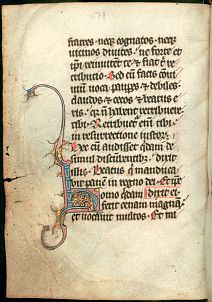 fratres. neqz cognatos. neqz
uicinos diuites. ne forte et
ipi reinuitent te ⁊ fiat t̄ re
tributio. Sed cū facis cōui
uiū uoca paupes ⁊ debiles
claudos ⁊ cecos ⁊ beatus e
ris. qr n̄ habent retribuere
tibi. Retribuet̄ eni tibi
in resurrectione iustoꝝ.
Hec cū audisset qdam de
simul discūbentibꝫ. dixit
illi. Beatus q manduca
bit panē in regno dei. Et ipē
Homo qdam dixit ei.
fecit cenam magnā
et uocauit multos. Et mi